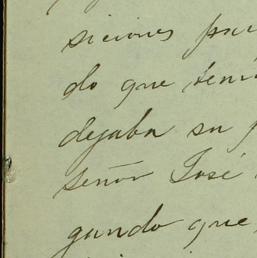 siciones
do que tení
dejaba su
señor José
gando que,